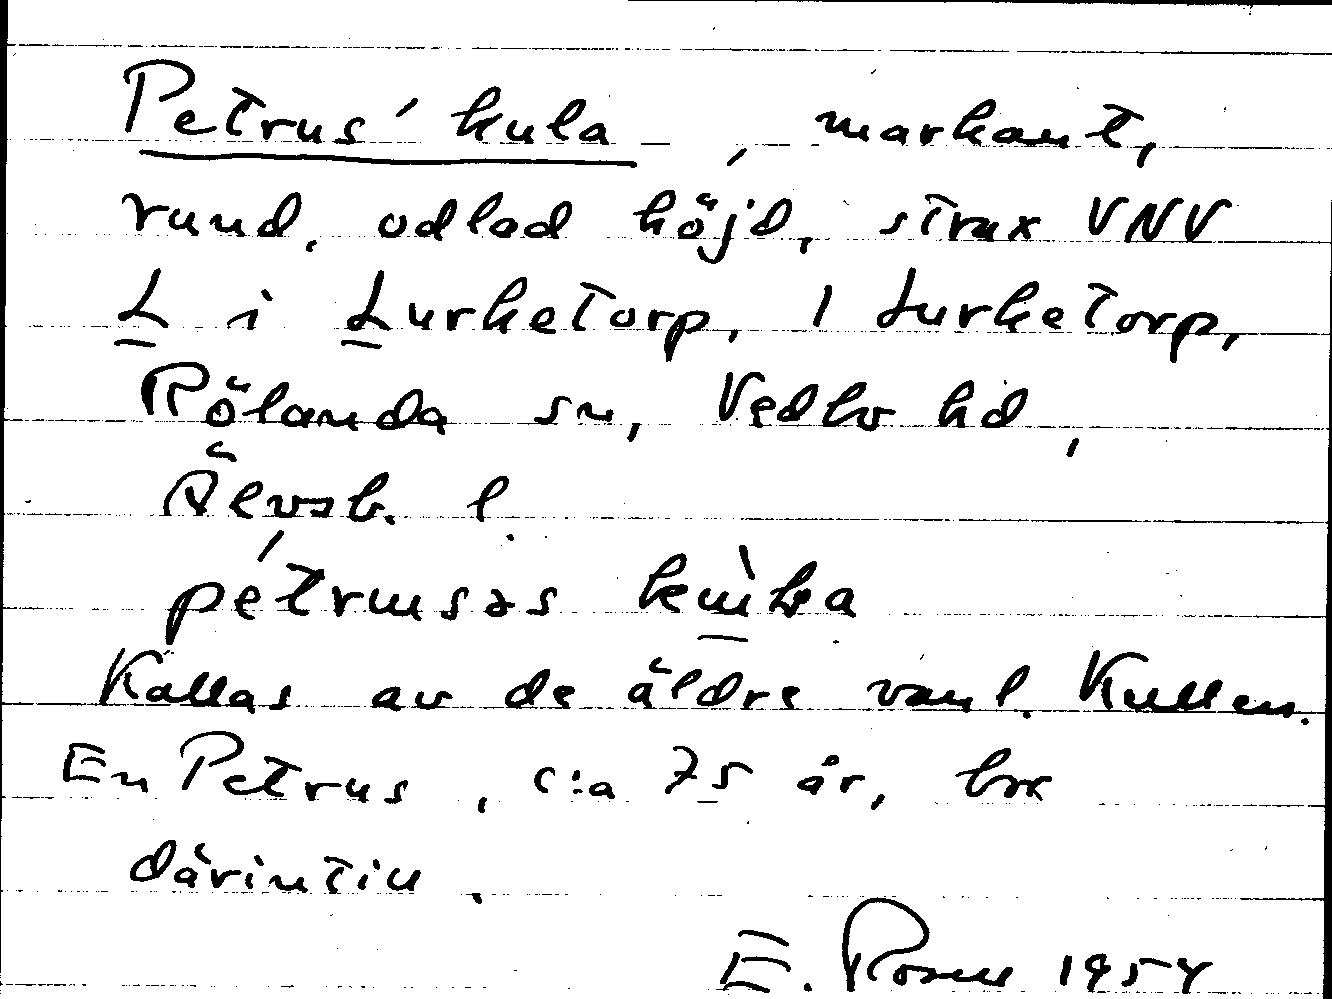 Petrus' kula, markant,
rund, odlad höjd, strax VNV
L i Lurketorp, 1 Lurketorp,
Rölanda sn, Vedbo hd,
Älvsb. l.
Kallas av de äldre vanl. Kullen.
En Petrus, c:a 75 år, bor
därintill.
E. Rosell 1954